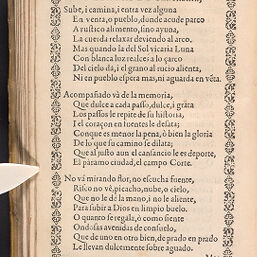 Sube, i camina, i entra vez alguna
En venta, o pueblo, donde acude parco
A rustico alimento, sino ayuna,
La cuerda relaxar deviendo al arco.
Mas quando la del Sol vicaria Luna
Con blanca luz realce a lo çarco
Del cielo dà, i el grano al sucio alienta,
Ni en pueblo espera mas, ni aguarda en vẽta.
Acompañado và de la memoria,
Que dulce a cada passo, dulce, i grata
Los passos le repite de su historia,
I el coraçon en fuentes le desata;
Con que es menor la pena, ò bien la gloria
De lo que su camino se dilata;
Que al justo aun el cansancio le es deporte,
El paramo ciudad, el campo Corte.
No và mirando flor, no escucha fuente,
Risco no vè, picacho, nube, o cielo,
Que no le dè la mano, i no le aliente,
Para subir a Dios en limpio buelo.
O quanto se regala, ò como siente
Ondosas avenidas de consuelo,
Que de uno en otro bien, de prado en prado
Le llevan dulcemente sobre aguado.